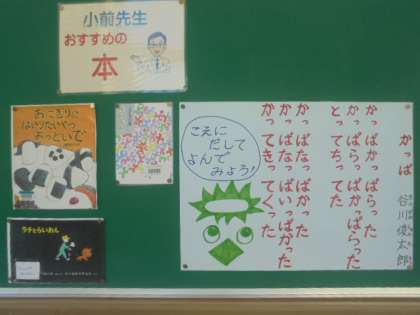 小前先生
おすすめの
本
おにぎりに
はいりたいやつ
よっといで
ラチとらいおん
かっぱ
谷川俊太郎
かっぱかっぱらった
かっぱらっぱかっぱらった
とってちってた
かっぱなっぱかった
かっぱなっぱいっぱかった
かってきってくった
こえに
だして
よんで
みよう!